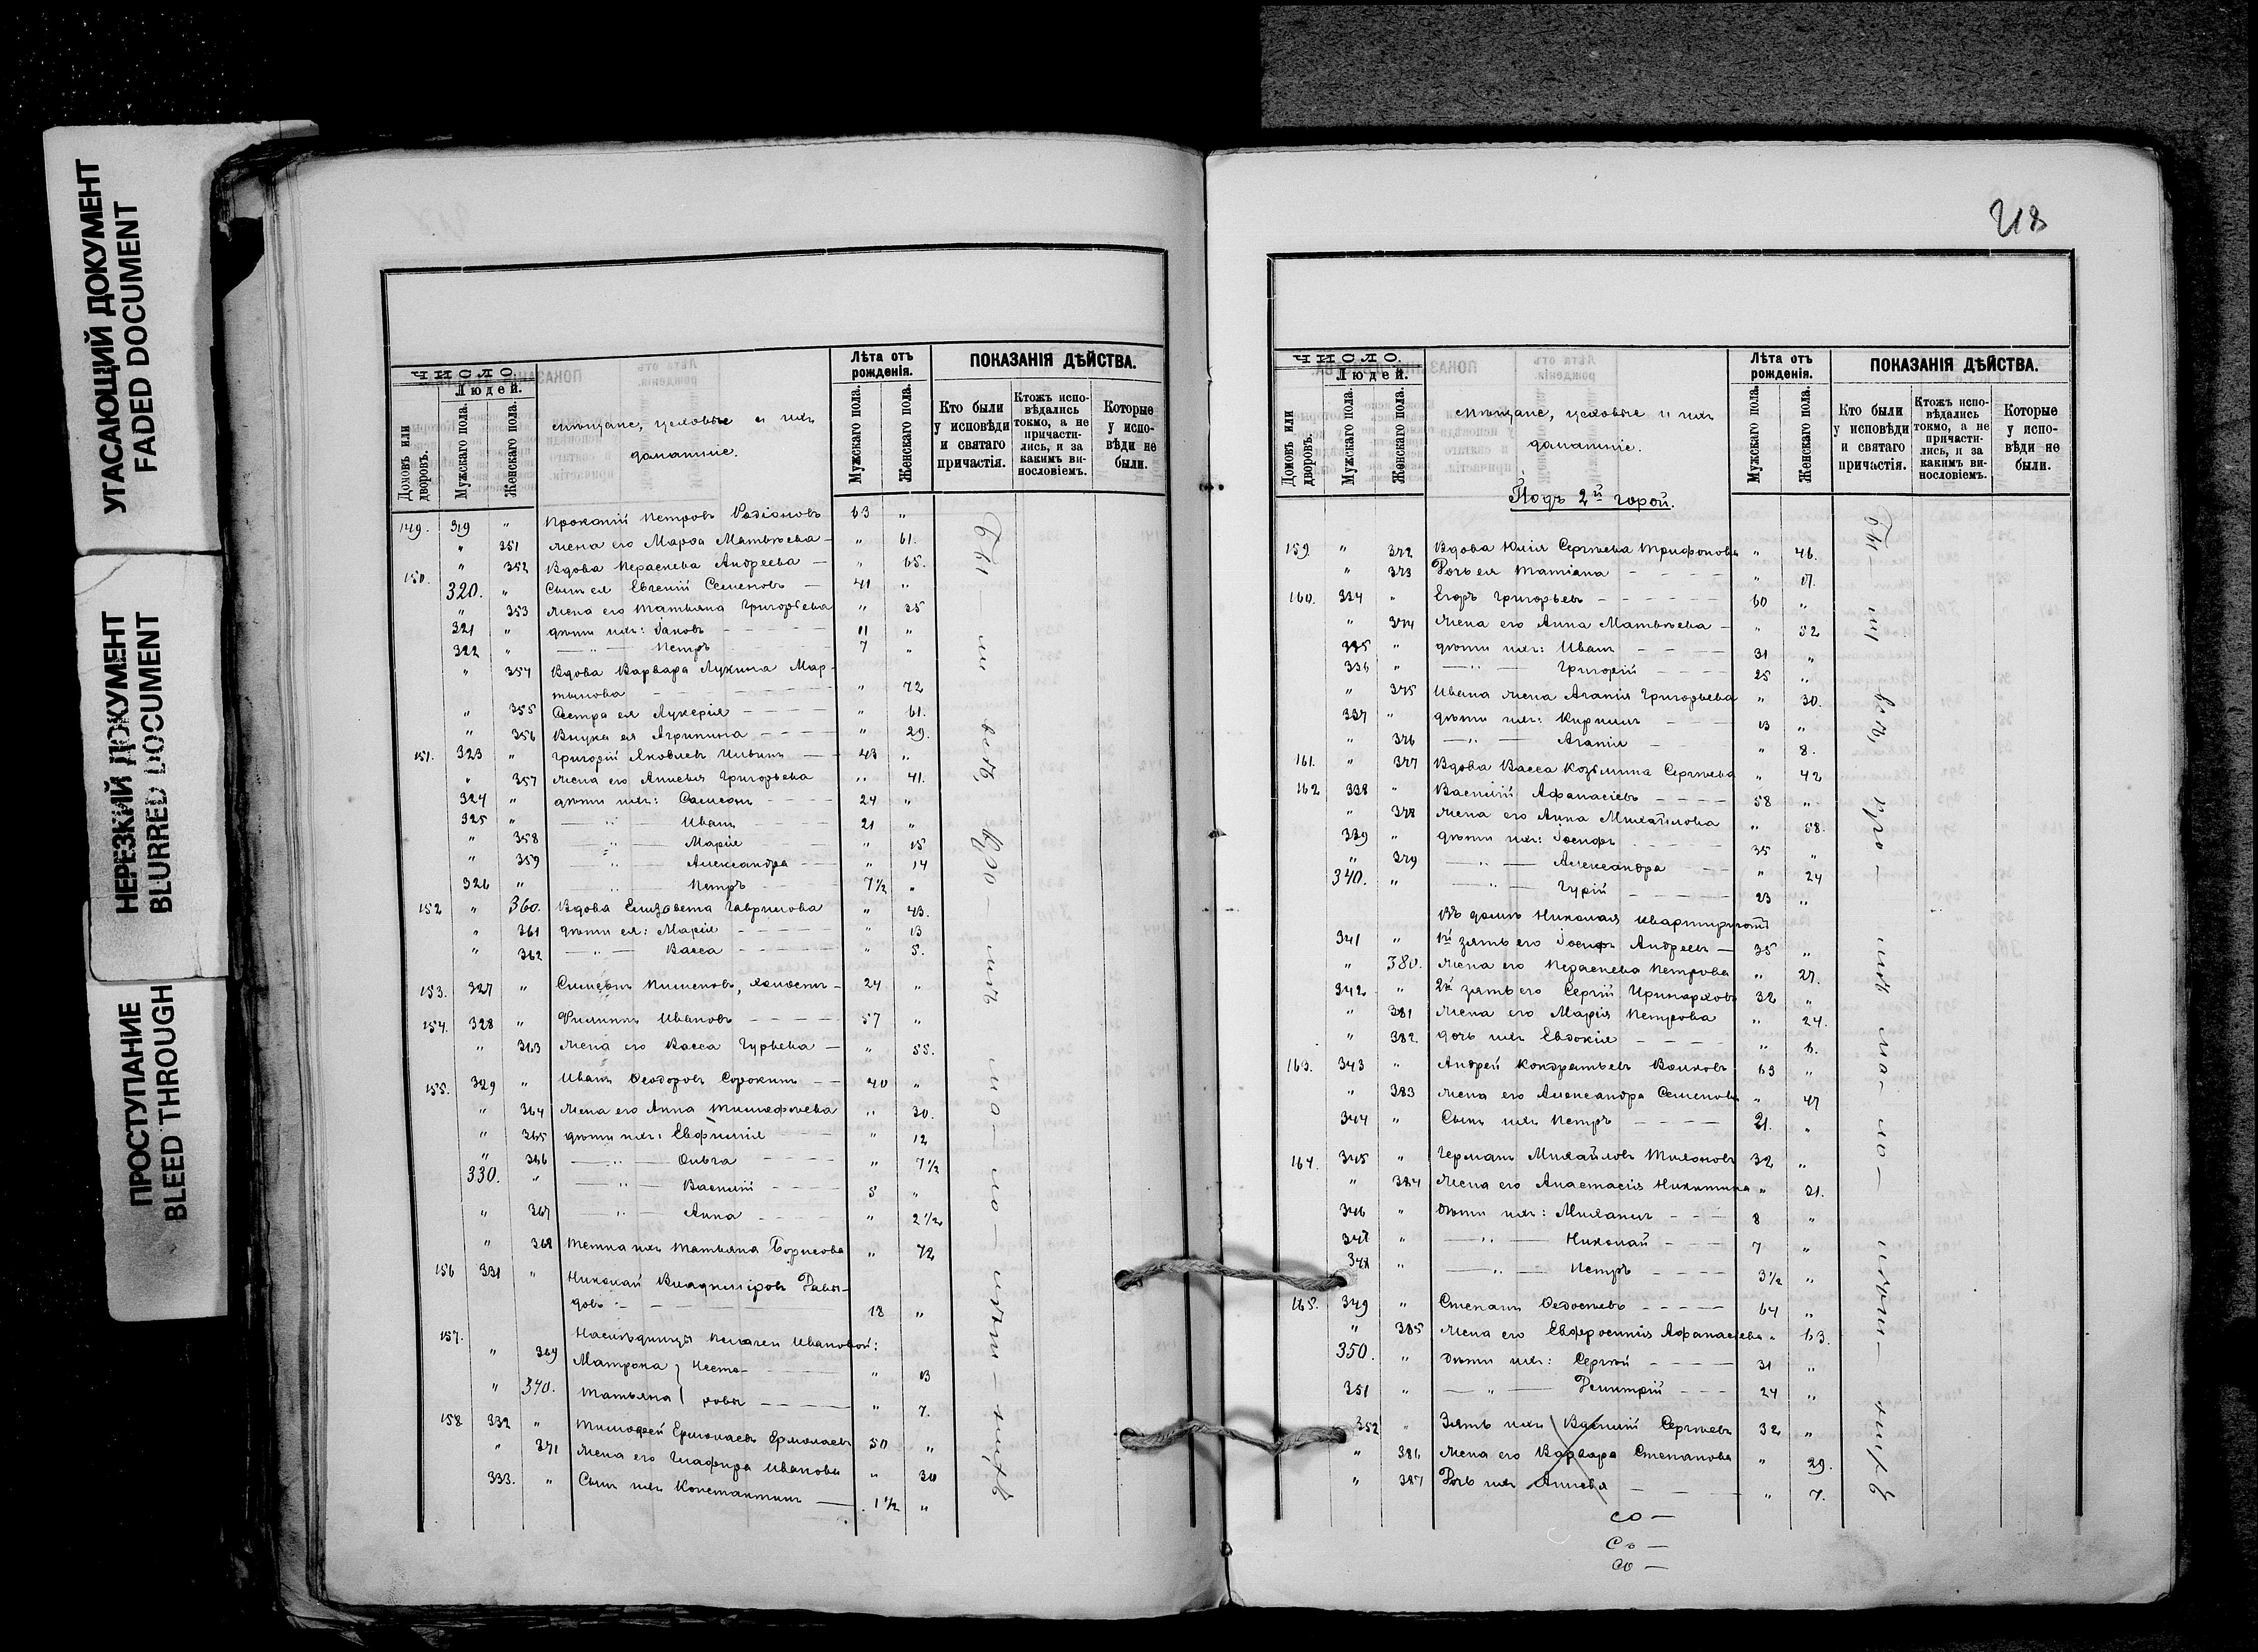 УГАСАЮЩИЙ ДОКУМЕНТ
FADED DOCUMENT
НЕРЕЗКИЙ ДОКУМЕНТ
BLURRED DOCUMENT
ПРОСТУПАНИЕ
BLEED THROUGH
ЧИСЛО.
Людей.
Домовъ или дворовъ.
Мужскаго пола.
Женскаго пола.
мѣщане, цеховые и ихъ
домашніе.
Лѣта отъ рожденія.
Мужскаго пола.
Женскаго пола.
ПОКАЗАНІЯ ДѢЙСТВА.
Кто были у исповѣди и святаго причастія.
Ктожъ исповѣдались токмо, а не причастились, и за какимъ винословіемъ.
Которые у исповѣди не были.
149. 319 " Прокопій Петровъ Родіоновъ 63 "
" 351 Жена его Марѳа Матвѣева - " 61.
150. " 352 Вдова Параскева Андреева — " 65.
320. " Сынъ ея Евгеній Семеновъ — 41 "
" 353 Жена его Татьяна Григорьева " 35
321 " дѣти ихъ: Іаковъ - - - 11 "
322 " — " — Петръ - - - 7 "
" 354 Вдова Варвара Лукина Мар-
тынова - - - " 72
" 355 Сестра ея Лукерія - - - " 61.
" 356 Внука ея Агрипина - - - " 29.
151. 323 " Григорій Яковлевъ Ильинъ — 43 "
" 357 Жена его Анисья Григорьева " 41.
324 " дѣти ихъ: Самсонъ - - - 24 "
325 " — " — Иванъ - - - 21 "
" 358 — " — Марія - - - " 15
" 359 — " — Александра - - " 14
326 " — " — Петръ - - - 7½ "
152 " 360. Вдова Елизавета Гаврилова " 43.
" 361 дѣти ея: Марія - - - " 13
" 362 — " — Васса - - - " 5.
153. 327 " Симеонъ Пименовъ, холостъ - 24 "
154. 328 " Филиппъ Ивановъ - - - 57 "
" 363 Жена его Васса Гурьева — " 55.
155. 329 " Иванъ Ѳеодоровъ Сорокинъ - - 40 "
" 364 Жена его Анна Тимоѳѣева " 30.
" 365 дѣти ихъ: Евфимія - - - " 12
" 366 — " — Ольга - - - " 7½
330. " — " — Василій - - - 5 "
" 367 — " — Анна - - - " 2½
" 368 Тетка ихъ Татьяна Борисова " 72
156 331 " Николай Владиміровъ Давы-
довъ - - - 18 "
157. Наслѣдницы Пелагеи Ивановой:
" 369 Матрона } Несте- - - - " 13
" 370. Татьяна } ровы - - - " 7.
158 332 " Тимофей Ермолаевъ Ермолаевъ 50 "
" 371 Жена его Глафира Иванова " 30
333. " Сынъ ихъ Константинъ — 1½ "
218
ЧИСЛО.
Людей.
Домовъ или дворовъ.
Мужскаго пола.
Женскаго пола.
мѣщане, цеховые и ихъ
домашніе.
Лѣта отъ рожденія.
Мужскаго пола.
Женскаго пола.
ПОКАЗАНІЯ ДѢЙСТВА.
Кто были у исповѣди и святаго причастія.
Ктожъ исповѣдались токмо, а не причастились, и за какимъ винословіемъ.
Которые у исповѣди не были.
Подъ 2й горой.
159. " 372 Вдова Юлія Сергѣева Трифонова " 46.
" 373 Дочь ея Татіана - - - " 17.
160. 334 " Егоръ Григорьевъ - - - 60 "
" 374 Жена его Анна Матвѣева - " 52
335 " дѣти ихъ: Иванъ - - - 31 "
336 " — " — Григорій - - - 25 "
" 375 Ивана жена Агапія Григорьева " 30.
337 " дѣти ихъ: Кириллъ - - - 13 "
" 376 — " — Агапія - " 8.
161. " 377 Вдова Васса Козьмина Сергѣева " 42
162 338 " Василій Афанасіевъ - - - 58 "
" 378 Жена его Анна Михайлова " 58.
339 " дѣти ихъ: Іосифъ - - - 35 "
" 379 — " — Александра - - " 24
340. " — " — Гурій - - - 23 "
Въ домѣ Николая квартируютъ
341 " 1й зять его Іосифъ Андреевъ — 35 "
" 380. Жена его Параскева Петрова " 27.
342 " 2й зять его Сергій Иринарховъ 32 "
" 381 Жена его Марія Петрова " 24.
" 382. дочь ихъ Евдокія - - - "
163. 343 " Андрей Кондратьевъ Волковъ 63 "
" 383 Жена его Александра Семенова " 47
344 " Сынъ ихъ Петръ - - - 21. "
164. 345 " Германъ Михайловъ Тихоновъ 32 "
" 384 Жена его Анастасія Никитина " 31.
346 " Дѣти ихъ: Михаилъ - - - 8 "
347 " — " — Николай - - - 7 "
348 " — " — Петръ - - - 3½ "
165. 349 " Степанъ Ѳедосѣевъ - - - 64 "
" 385 Жена его Евфросинія Афанасьева " 63.
350. " Дѣти ихъ: Сергѣй - - - 31 "
351 " — " — Димитрій - - - 24 "
352 " Зять ихъ Василій Сергѣевъ 32 "
" 386 Жена его Варвара Степанова " 29.
" 387 Дочь ихъ Анисья - - - " 7.
со —
со —
со —